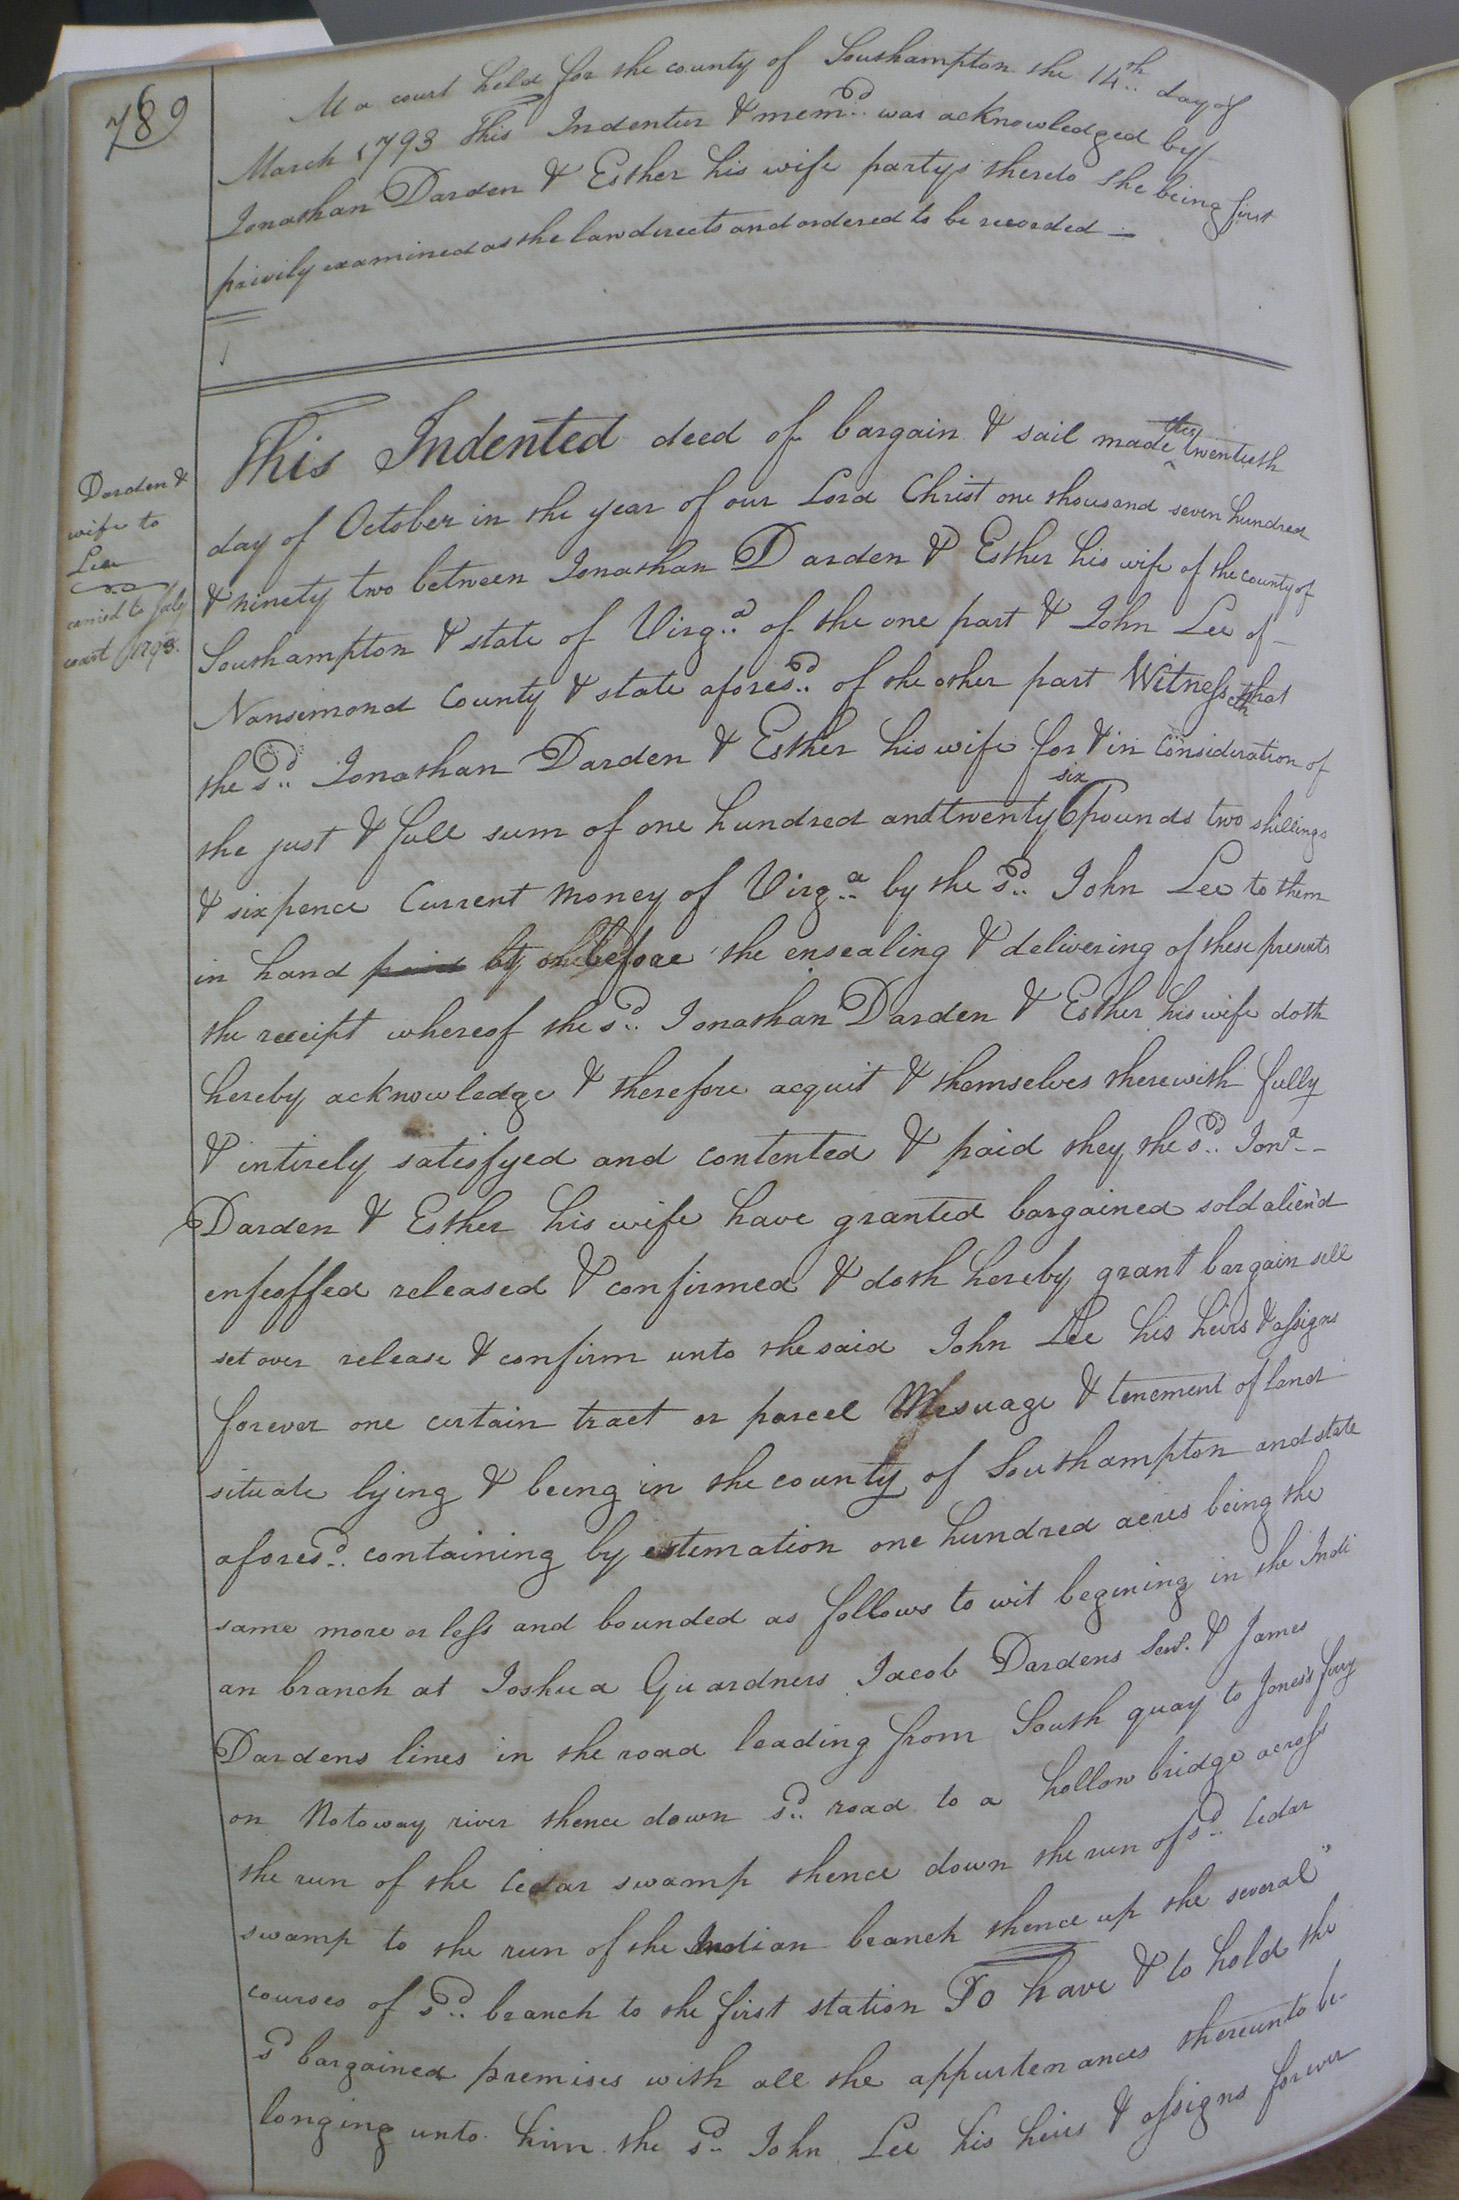 789
At a court held for the county of Southampton the 14th.. day of
March 1793 This Indentur & memd.. was acknowledged by
Jonathan Darden & Esther his wife partys thereto she being first
privily examined as the law directs and ordered to be recorded —
Darden &
wife to
Lee
carried to July
court 1793.
This Indented deed of bargain & sail made the twentieth
day of October in the year of our Lord Christ one thousand seven hundred
& ninety two between Jonathan Darden & Esther his wife of the county of
Southampton & state of Virg..a of the one part & John Lee of
Nansemond County & state afores..d of the other part Witnesseth that
the s..d Jonathan Darden & Esther his wife for & in Consideration of
the just & full sum of one hundred and twenty six pounds two shillings
& sixpence Current money of Virg..a by the s..d John Lee to them
in hand paid at or before the ensealing & delivering of these presents
the receipt whereof the s..d Jonathan Darden & Esther his wife doth
hereby acknowledge & therefore acquit & themselves therewith fully
& intirely satisfyed and contented & paid they the s..d Jona --
Darden & Esther his wife have granted bargained sold alien'd
enfeoffed released & confirmed & doth hereby grant bargain sell
set over release & confirm unto the said John Lee his heirs & assigns
forever one certain tract or parcel Mesuage & tenement of land
situate lying & being in the county of Southampton and state
afores..d containing by estemation one hundred acres being the
same more or less and bounded as follows to wit begining in the Indi
an branch at Joshua Guardners Jacob Dardens Senr. & James
Dardens lines in the road leading from South quay to Jones's ferry
on Notoway river thence down s..d road to a hollow bridge across
the run of the Cedar swamp thence down the run of s..d Cedar
swamp to the run of the Indian branch thence up the several
courses of s..d branch to the first station To have & to hold the
sd bargained premises with all the appurtenances thereunto be-
longing unto him the s..d John Lee his heirs & assigns forever